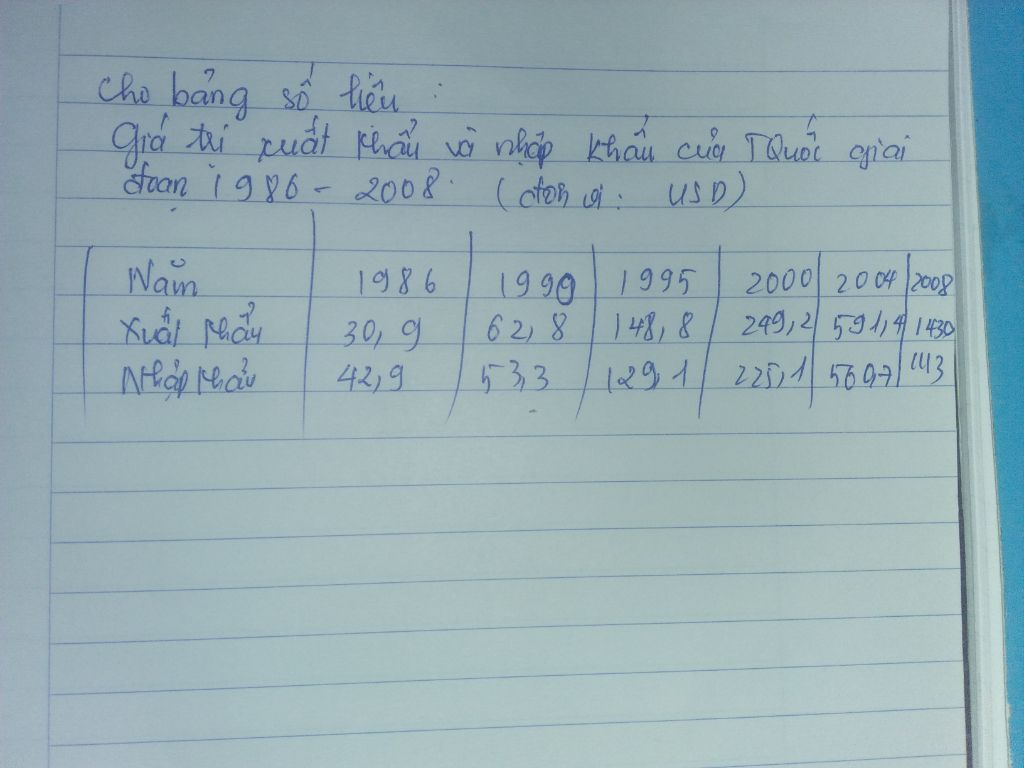 Cho bảng số liệu :
Giá trị xuất khẩu và nhập khẩu của TQuốc giai
đoạn 1986 - 2008. (đơn vị : USD)
Năm 1986 1990 1995 2000 2004 2008
Xuất khẩu 30,9 62,8 148,8 249,2 591,4 1430
Nhập khẩu 42,9 53,3 129,1 225,1